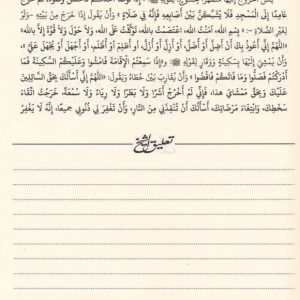 عَامِدًا إِلَى الْمَسْجِدِ فَلَا يُشَبِّكَنَّ بَيْنَ أَصَابِعِهِ فَإِنَّهُ فِي صَلَاةٍ» وَأَنْ يَقُولَ إِذَا خَرَجَ مِنْ بَيْتِهِ -وَلَوْ
لِغَيْرِ الصَّلَاةِ-: «بِسْمِ اللهِ، آمَنْتُ بِاللهِ، اعْتَصَمْتُ بِاللهِ، تَوَكَّلْتُ عَلَى اللهِ، وَلَا حَوْلَ وَلَا قُوَّةَ إِلَّا بِاللهِ»
«اللَّهُمَّ إِنِّي أَعُوذُ بِكَ أَنْ أَضِلَّ أَوْ أُضَلَّ، أَوْ أَزِلَّ أَوْ أُزَلَّ، أَوْ أَظْلِمَ أَوْ أُظْلَمَ، أَوْ أَجْهَلَ أَوْ يُجْهَلَ عَلَيَّ»
وَأَنْ يَمْشِيَ إِلَيْهَا بِسَكِينَةٍ وَوَقَارٍ لِقَوْلِهِ ﷺ: «وَإِذَا سَمِعْتُمُ الْإِقَامَةَ فَامْشُوا وَعَلَيْكُمُ السَّكِينَةُ، فَمَا
أَدْرَكْتُمْ فَصَلُّوا وَمَا فَاتَكُمْ فَاقْضُوا» وَأَنْ يُقَارِبَ بَيْنَ خُطَاهُ وَيَقُولُ: «اللَّهُمَّ إِنِّي أَسْأَلُكَ بِحَقِّ السَّائِلِينَ
عَلَيْكَ وَبِحَقِّ مَمْشَايَ هَذَا، فَإِنِّي لَمْ أَخْرُجْ أَشَرًا وَلَا بَطَرًا وَلَا رِيَاءً وَلَا سُمْعَةً، خَرَجْتُ اتِّقَاءَ
سَخَطِكَ، وَابْتِغَاءَ مَرْضَاتِكَ، أَسْأَلُكَ أَنْ تُنْقِذَنِي مِنَ النَّارِ، وَأَنْ تَغْفِرَ لِي ذُنُوبِي جَمِيعًا، إِنَّهُ لَا يَغْفِرُ
تعليق الشيخ